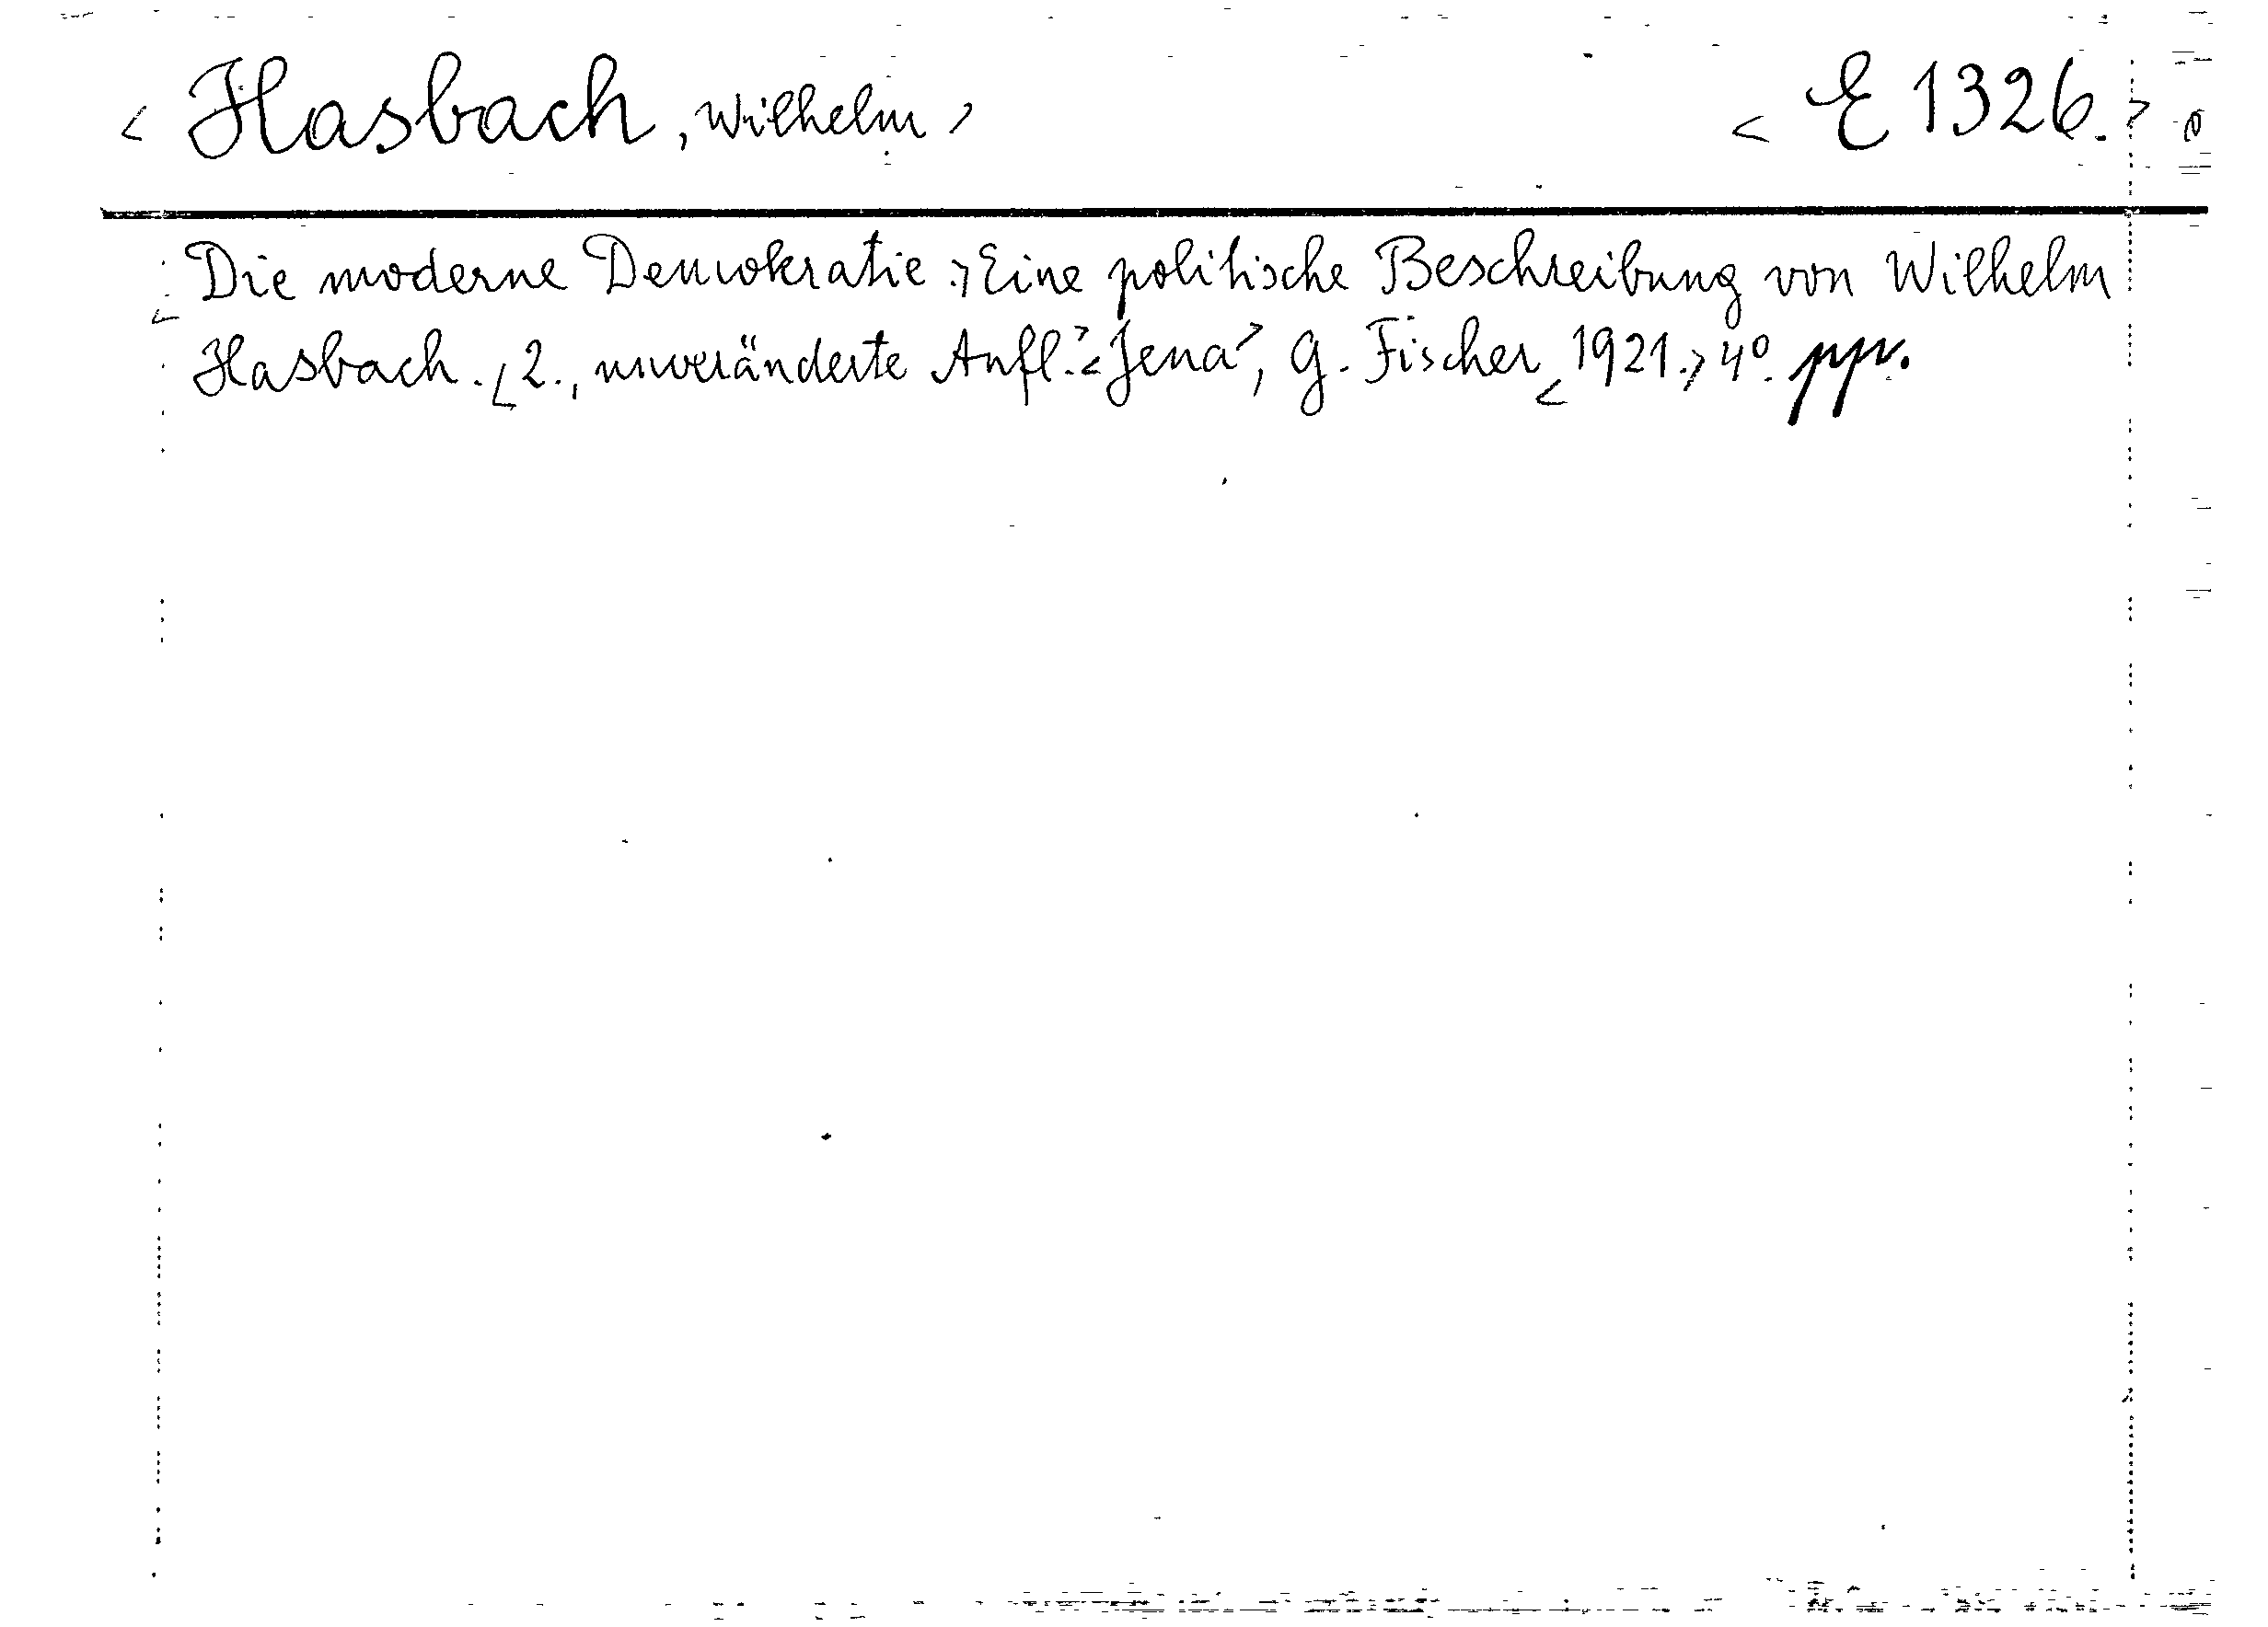 < Hasbach, Wilhelm > < E 1326. >
< Die moderne Demokratie. > Eine politische Beschreibung von Wilhelm
Hasbach. < 2., unveränderte Aufl. > < Jena >, G. Fischer < 1921. > 4°. ppr.